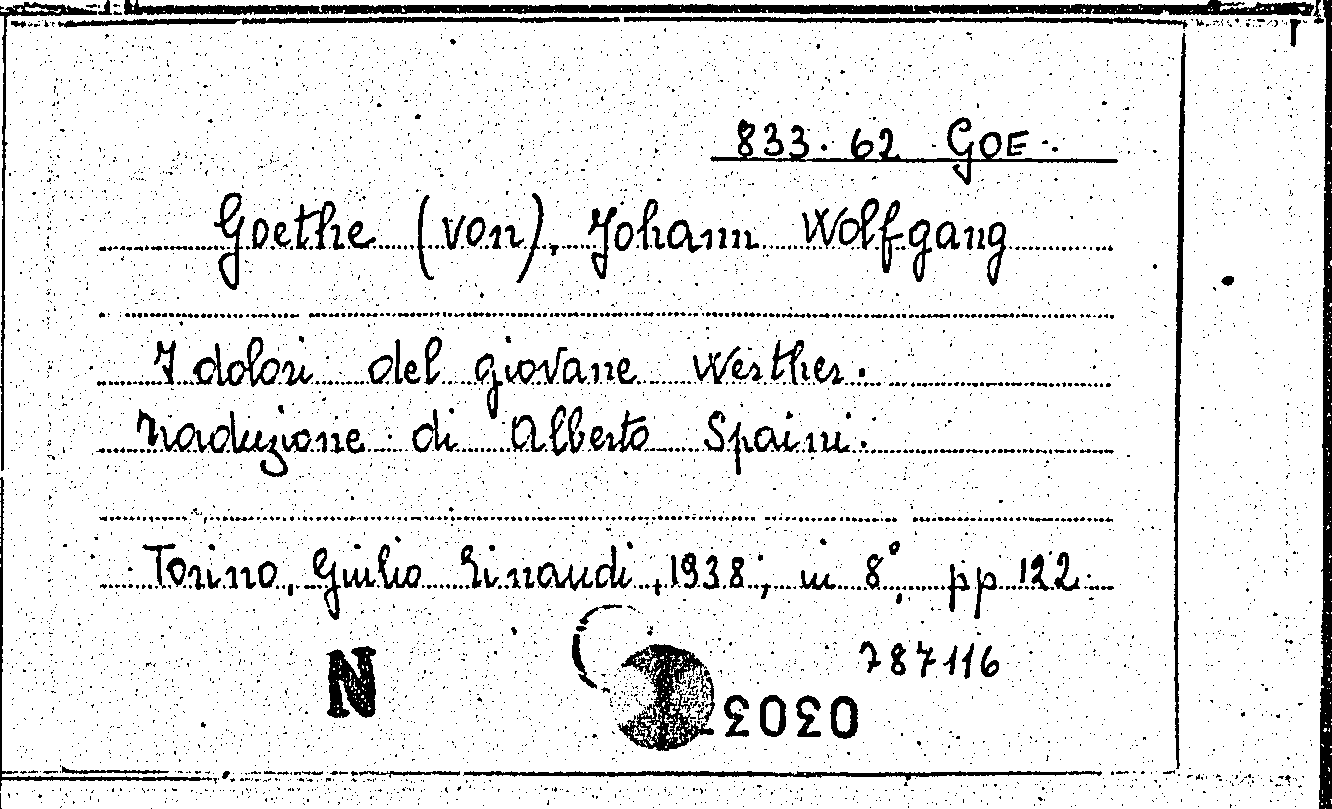 833.62 GOE.
Goethe (von), Johann Wolfgang
I dolori del giovane Werther.
Traduzione di Alberto Spaini.
Torino, Giulio Einaudi, 1938; in 8°, pp 122
787116
N
0303